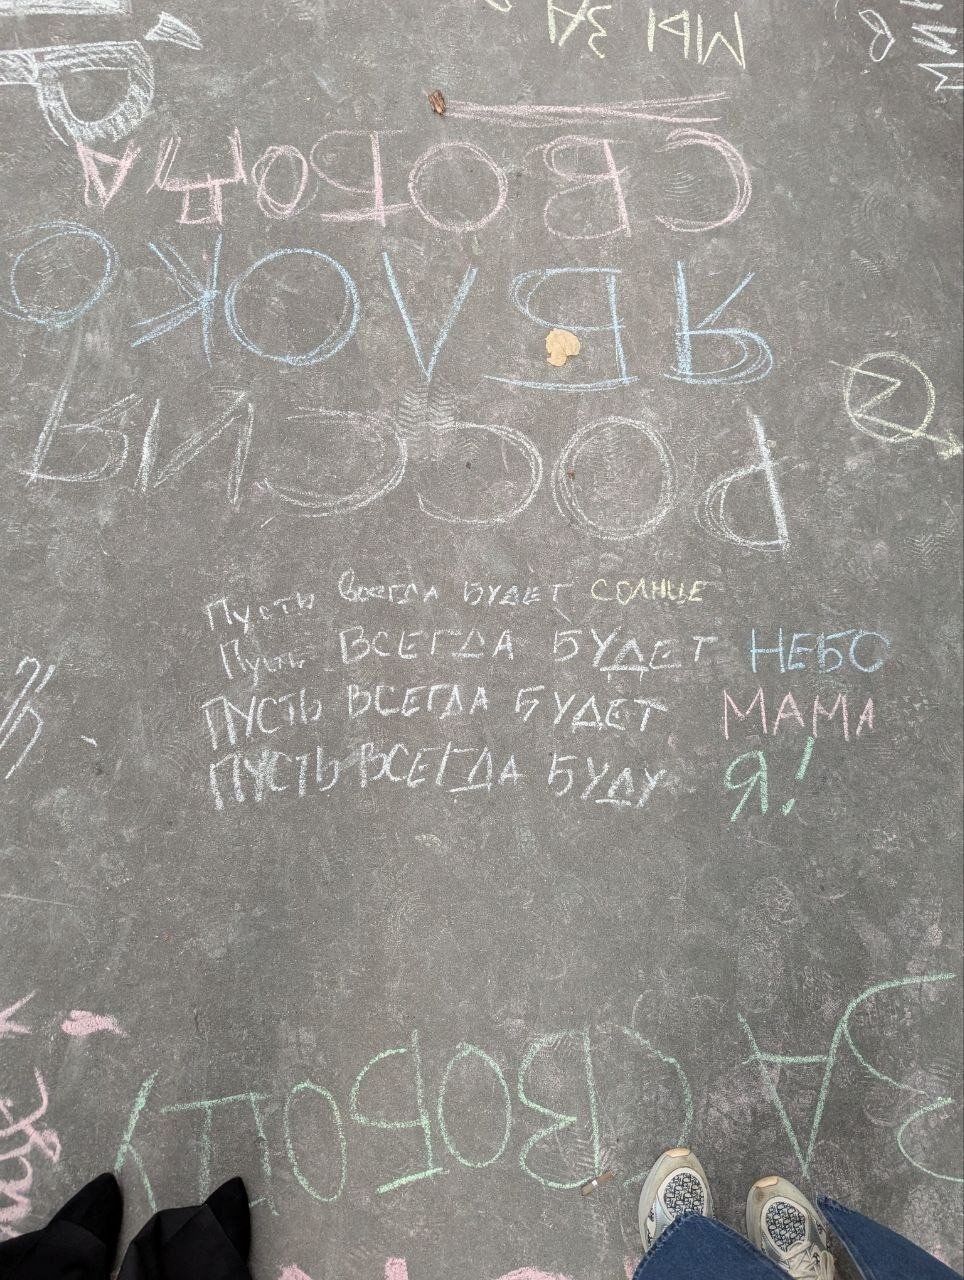 МЫ ЗА
СВОБОДА
ЯБЛОКО
РОССИЯ
Пусть всегда БУДЕТ СОЛНЦЕ
Пусть ВСЕГДА БУДЕТ НЕБО
ПУСТЬ ВСЕГДА БУДЕТ МАМА
ПУСТЬ ВСЕГДА БУДУ Я!
ЗА СВОБОДУ